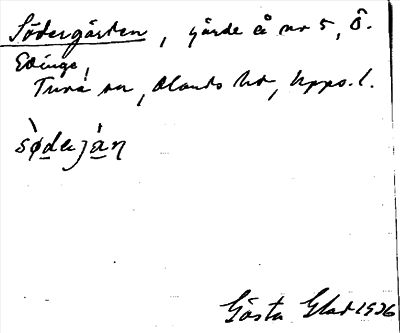 Södergården, gärde å nr 5, Ö.
Edinge,
Tuna sn, Olands hd, Upps. l.
sødejan
Gösta Glad 1936